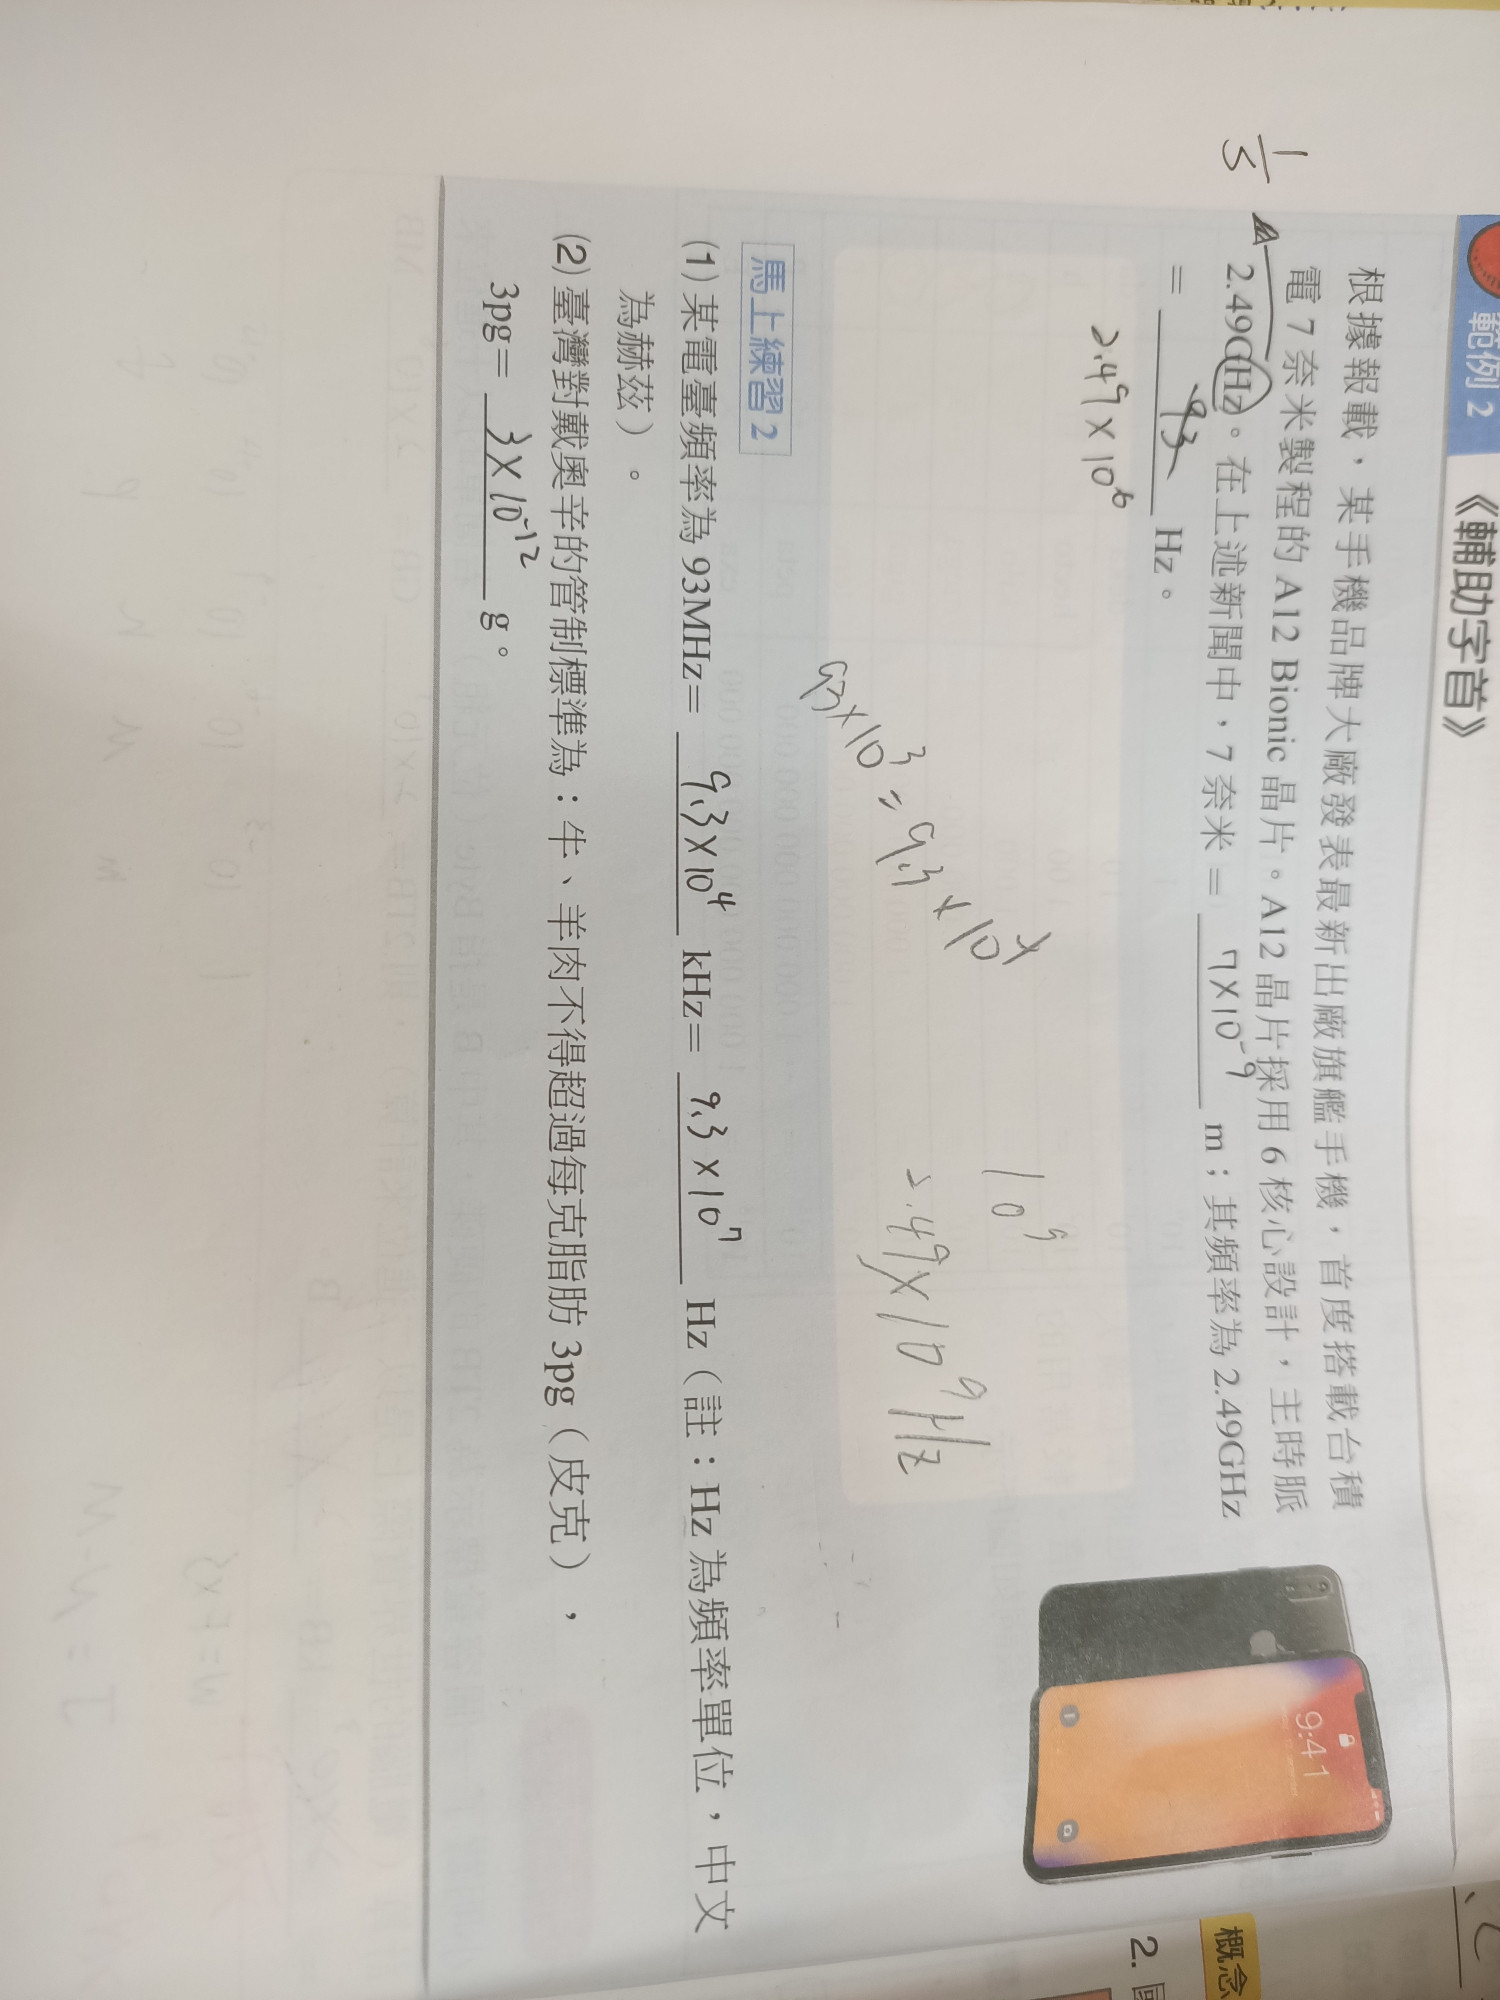 範例 2 《輔助字首》
根據報載，某手機品牌大廠發表最新出廠旗艦手機，首度搭載台積
電 7 奈米製程的 A12 Bionic 晶片。A12 晶片採用 6 核心設計，主時脈
1/S
2.49GHz。在上述新聞中，7 奈米 = 7×10⁻⁹ m；其頻率為 2.49GHz
= 93 Hz。
2.49×10⁶
10⁹
93×10³ = 9.3×10⁴
2.49×10⁹Hz
9:41
馬上練習 2
(1) 某電臺頻率為 93MHz= 9.3×10⁴ kHz= 9.3×10⁷ Hz（註：Hz 為頻率單位，中文
為赫茲）。
(2) 臺灣對戴奧辛的管制標準為：牛、羊肉不得超過每克脂肪 3pg（皮克），
3pg= 3×10⁻¹² g。
概念
2.